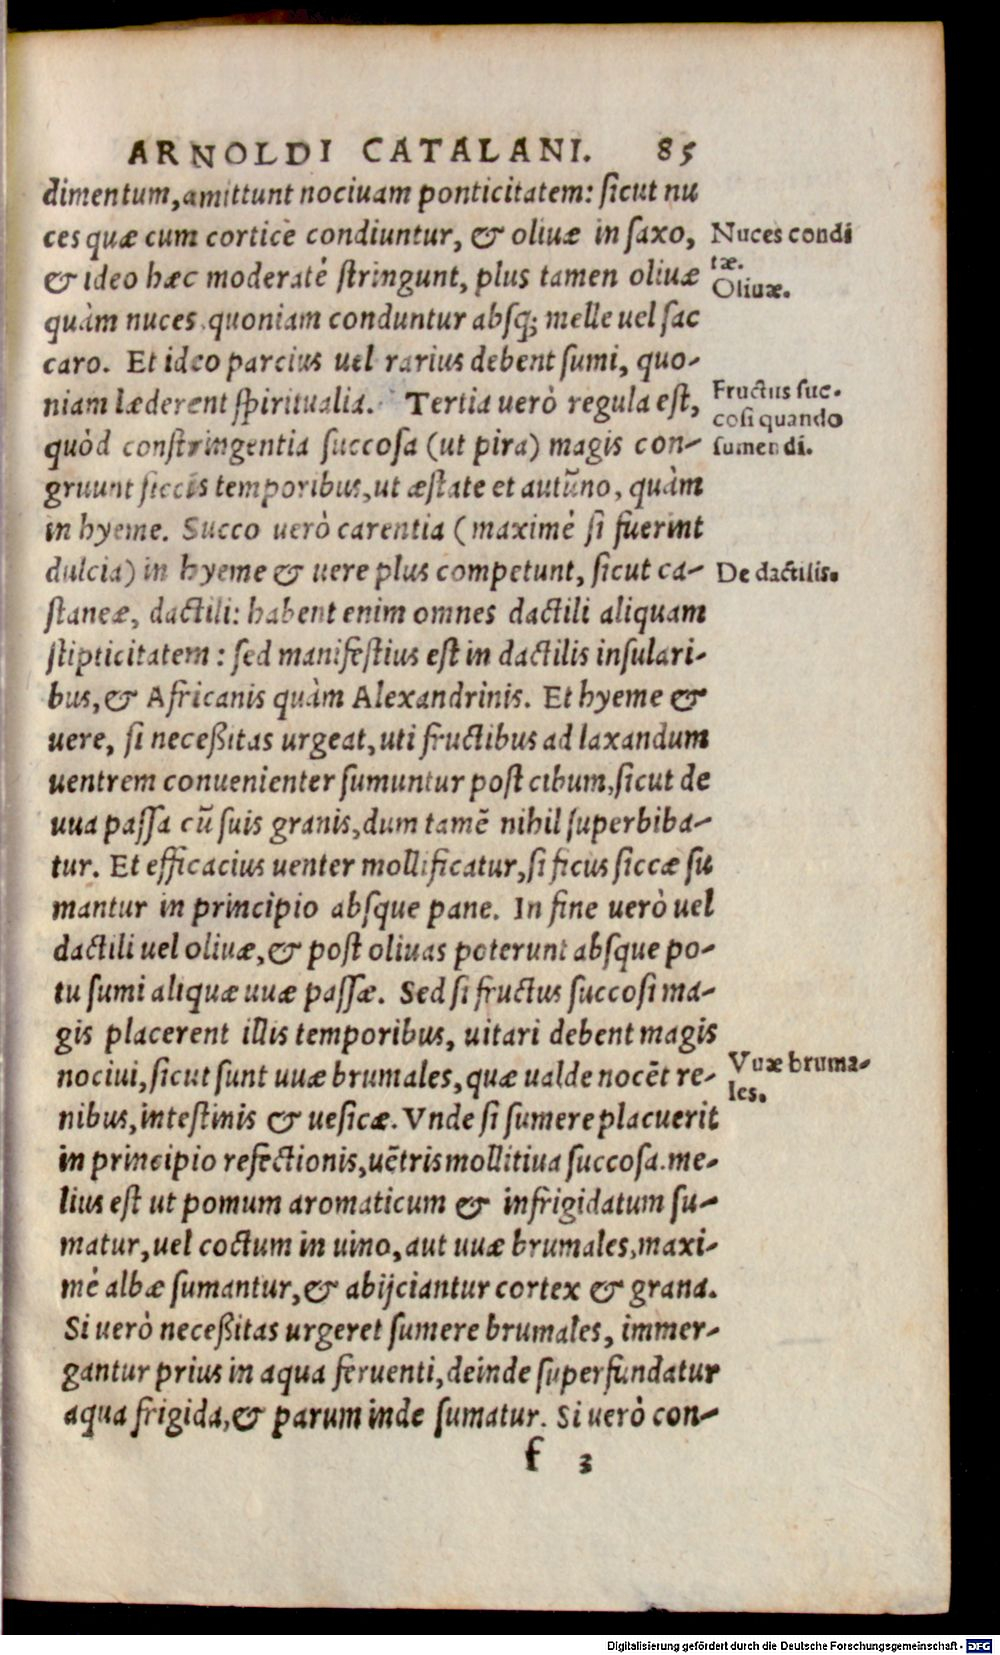 ARNOLDI CATALANI. 85
dimentum, amittunt nociuam ponticitatem: sicut nu
ces quæ cum cortice condiuntur, & oliuæ in saxo,
& ideo hæc moderaté stringunt, plus tamen oliuæ
quàm nuces, quoniam conduntur absq; melle uel sac
caro. Et ideo parcius uel rarius debent sumi, quo-
niam læderent spiritualia. Tertia uerò regula est,
quòd constringentia succosa (ut pira) magis con-
gruunt siccis temporibus, ut æstate et autũno, quàm
in hyeme. Succo uerò carentia (maximé si fuerint
dulcia) in hyeme & uere plus competunt, sicut ca-
staneæ, dactili: habent enim omnes dactili aliquam
stipticitatem: sed manifestius est in dactilis insulari-
bus, & Africanis quàm Alexandrinis. Et hyeme &
uere, si neceßitas urgeat, uti fructibus ad laxandum
uentrem conuenienter sumuntur post cibum, sicut de
uua passa cũ suis granis, dum tamẽ nihil superbiba-
tur. Et efficacius uenter mollificatur, si ficus siccæ su
mantur in principio absque pane. In fine uerò uel
dactili uel oliuæ, & post oliuas poterunt absque po-
tu sumi aliquæ uuæ passæ. Sed si fructus succosi ma-
gis placerent illis temporibus, uitari debent magis
nociui, sicut sunt uuæ brumales, quæ ualde nocẽt re-
nibus, intestinis & uesicæ. Vnde si sumere placuerit
in principio refectionis, uẽtris mollitiua succosa, me-
lius est ut pomum aromaticum & infrigidatum su-
matur, uel coctum in uino, aut uuæ brumales, maxi-
mé albæ sumantur, & abijciantur cortex & grana.
Si uerò neceßitas urgeret sumere brumales, immer-
gantur prius in aqua feruenti, deinde superfundatur
aqua frigida, & parum inde sumatur. Si uerò con-
f 3
Nuces condi
tæ.
Oliuæ.
Fructus suc-
cosi quando
sumendi.
De dactilis.
Vuæ bruma-
les.
Digitalisierung gefördert durch die Deutsche Forschungsgemeinschaft - DFG